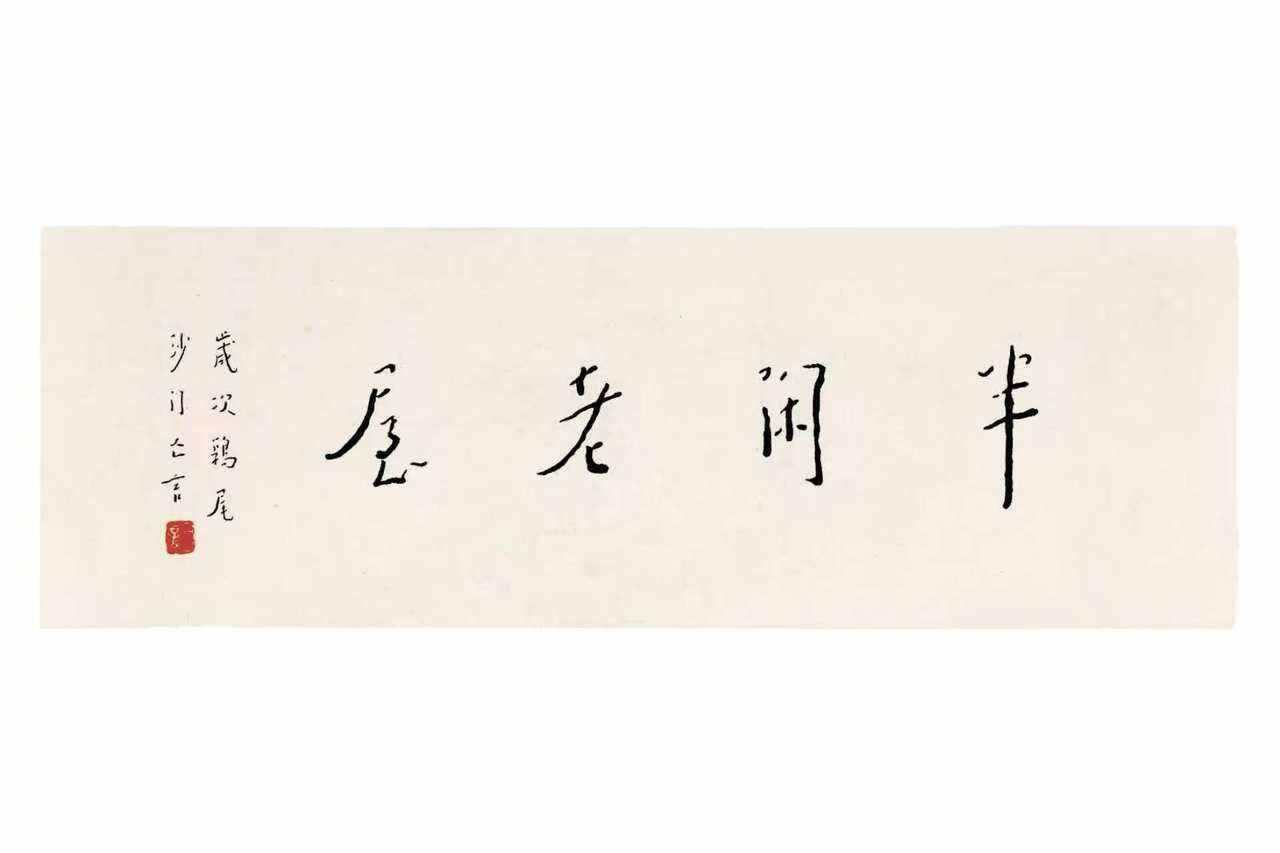 半閑老屋
歲次鶉尾
沙门亡言